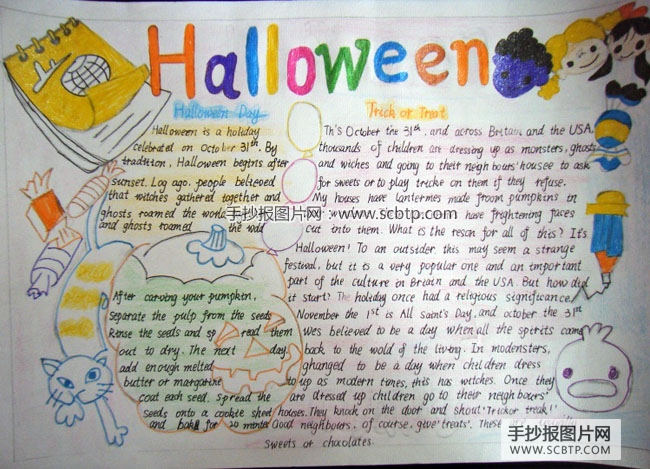 Halloween
Halloween Day
Halloween is a holiday
celebrated on October 31th. By
tradition, Halloween begins after
sunset. Log ago. people believed
that witches gathered together and
ghosts roamed the world
and ghosts roamed the wold
After carving your pumpkin,
Separate the pulp from the seeds
Rinse the seeds and sp read them
out to dry. The next day,
add enough melted
butter or margarine
coat each seed. spread the
seeds onto a cookie sheet
and bake for 20 minites
Trick or Treat
Th's October the 31th, and across Britain and the USA,
thousands of children are dressing up as monsters, ghosts
and wiches and going to their neighbours' housee to ask
for sweets or to play tricke on them if they refuse.
My houses have lantermes made froom pumpkins in
have frehtening faces
cut into them. What is the reson for all of this? It's
Halloween! To an outsider, this may seem a strange
festual, but it is a very popular one and an important
part of the culture in Britain and the USA. But how did
it start? The holiday once had a religious significance
November the 1st is All Saint's Day, and october the 31th
wes believed to be a day when all the spirits came
back to the wold of the living. In modensters,
ghanged to be a day when children dress
to up as modern times, this has witches. Once they
are dressed up children go to their neighbours'
houses. They knock on the door and shout 'Trickor treak!'
Good neighbours, of course, give 'treats'. These
sweets or chocolates.
手抄报图片网：www.scbtp.com
手抄报图片网
WWW.SCBTP.COM